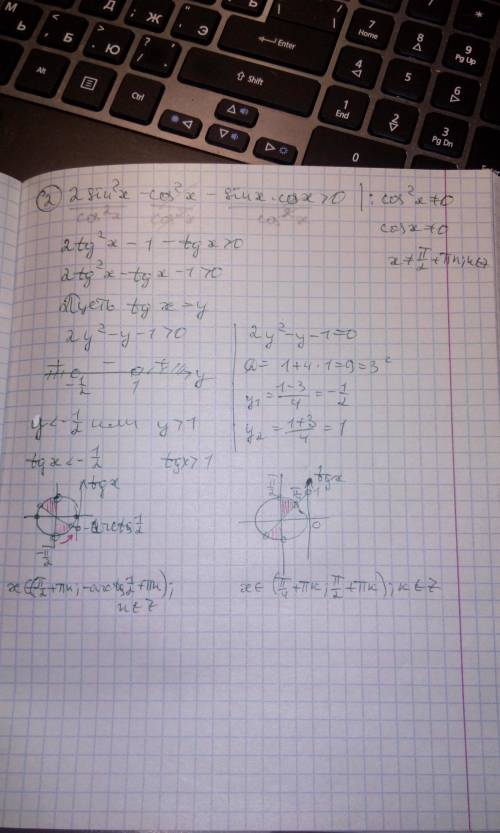 М Ь Б Ю Д Ж Э Ъ
< , > . ? / : ;
Enter
7 Home
8
9 Pg Up
*
4
5
6
Alt
Ctrl
Shift
1 End
2
3 Pg Dn
0
② 2sin²x - cos²x - sinx·cosx>0 | : cos²x≠0
cos²x cos²x cos²x
cosx≠0
x≠π/2+πn; n∈Z
2tg²x - 1 - tgx>0
2tg²x - tgx - 1>0
Пусть tgx=y
2y²-y-1>0
2y²-y-1=0
D= 1+4·2=9=3²
+ - +
-1/2 1 y
y₁=(1-3)/4=-1/2
y₂=(1+3)/4=1
y<-1/2 или y>1
tgx<-1/2 tgx>1
tgx
-arctg1/2
-π/2
tgx
π/2
π/4
1
0
x∈(-π/2+πn; -arctg1/2+πn);
n∈Z
x∈(π/4+πk; π/2+πk); k∈Z